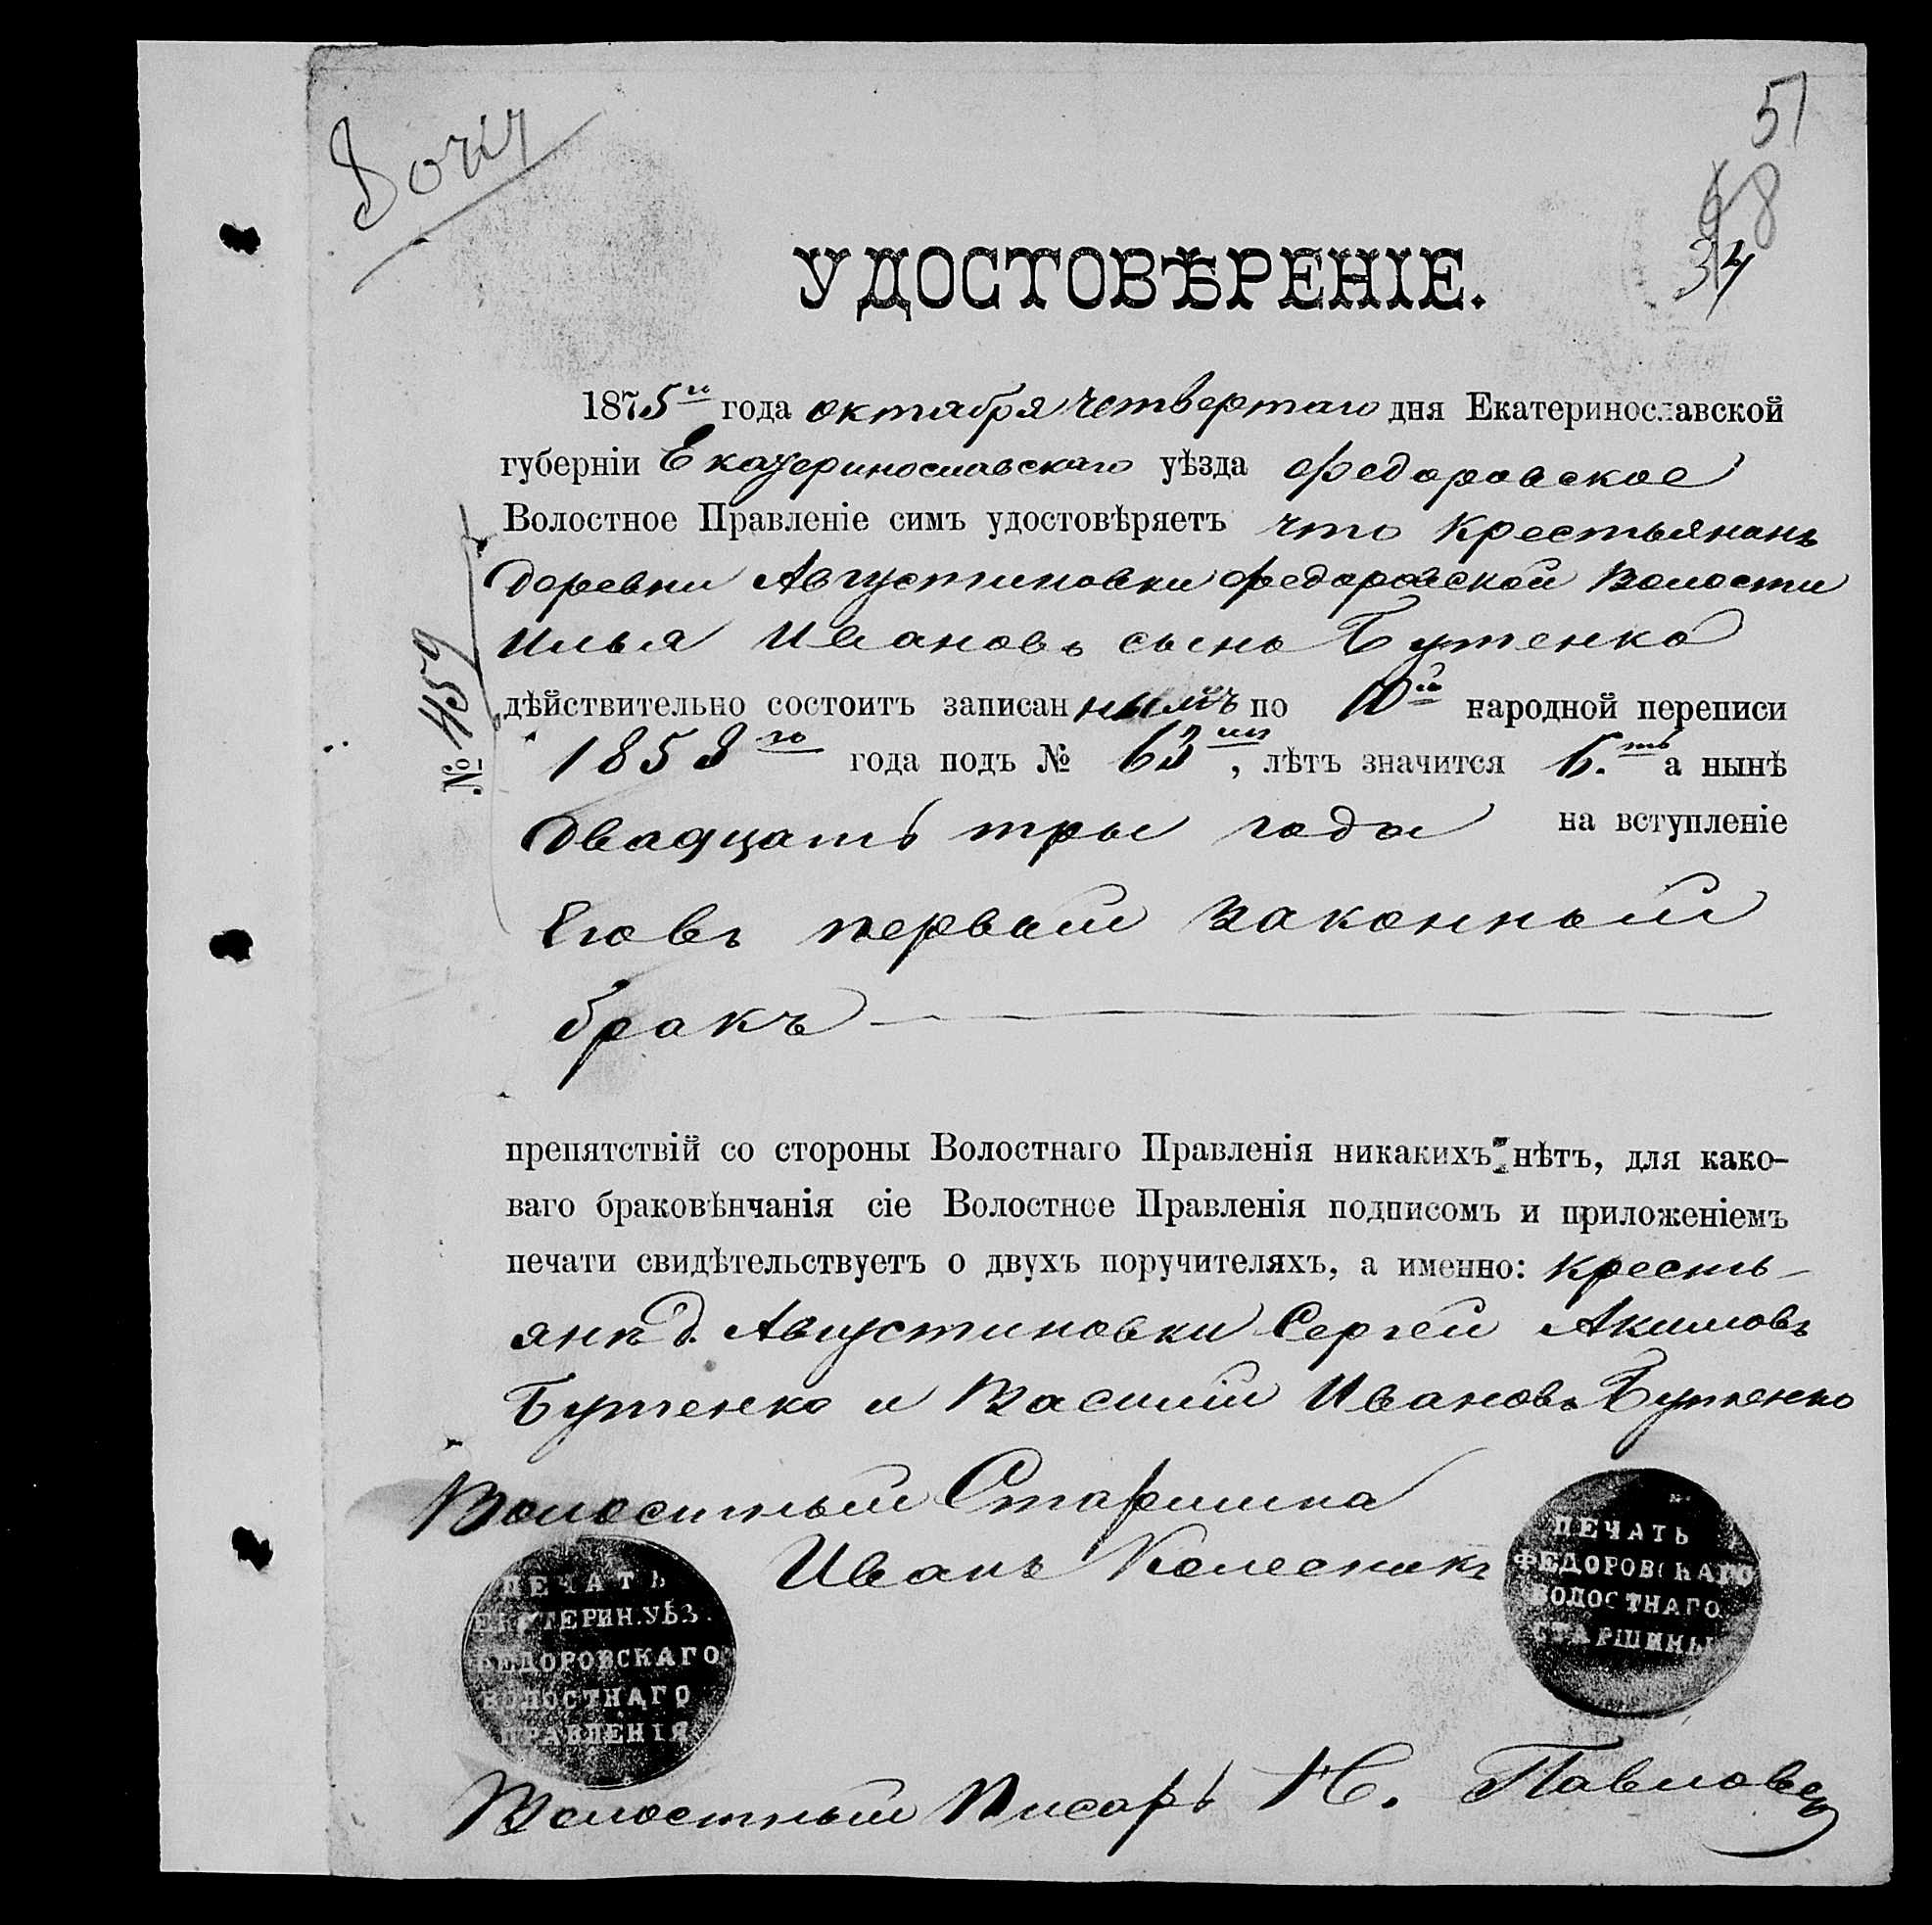 51
68
34
УДОСТОВѢРЕНІЕ.
1875го года октября четвертаго дня Екатеринославской
губерніи Екатеринославскаго уѣзда Федоровское
Волостное Правленіе симъ удостовѣряетъ что крестьянинъ
деревни Августиновки Федоровской Волости
Илья Ивановъ сынъ Бутенко
№ 459
дѣйствительно состоитъ записаннымъ по 10й народной переписи
1858го года подъ № 63мъ, лѣтъ значится 6.ть а нынѣ
двадцать три года на вступленіе
Его въ первый законный
бракъ
препятствій со стороны Волостнаго Правленія никакихъ нѣтъ, для како-
ваго браковѣнчанія сіе Волостное Правленія подписомъ и приложеніемъ
печати свидѣтельствуетъ о двухъ поручителяхъ, а именно: кресть-
янѣ д. Августиновки Сергей Акимовъ
Бутенко и Василій Ивановъ Бутенко
Волостный Старшина
Иванъ Колесникъ
ПЕЧАТЬ
ФЕДОРОВСКАГО
ВОЛОСТНАГО
СТАРШИНЫ
ПЕЧАТЬ
ЕКАТЕРИН. УѢЗ.
ФЕДОРОВСКАГО
ВОЛОСТНАГО
ПРАВЛЕНІЯ
Волостный Писарь Н. Павловъ